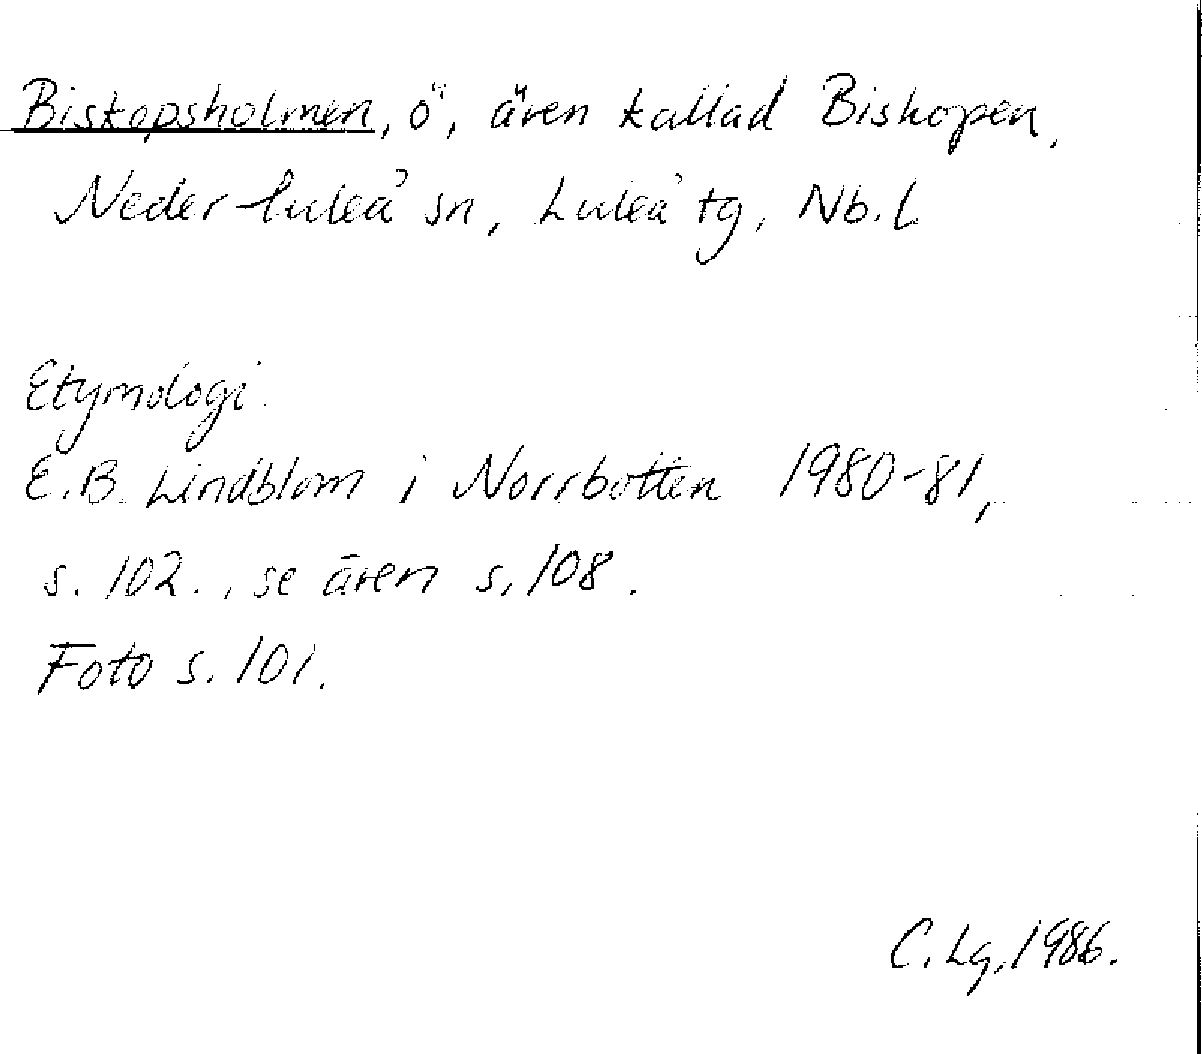 Biskopsholmen, ö, även kallad Biskopen,
Neder-luleå sn, Luleå tg, Nb. l.
Etymologi.
E.B. Lindblom i Norrbotten 1980-81,
s. 102., se även s. 108.
Foto s. 101.
C. Lg, 1986.